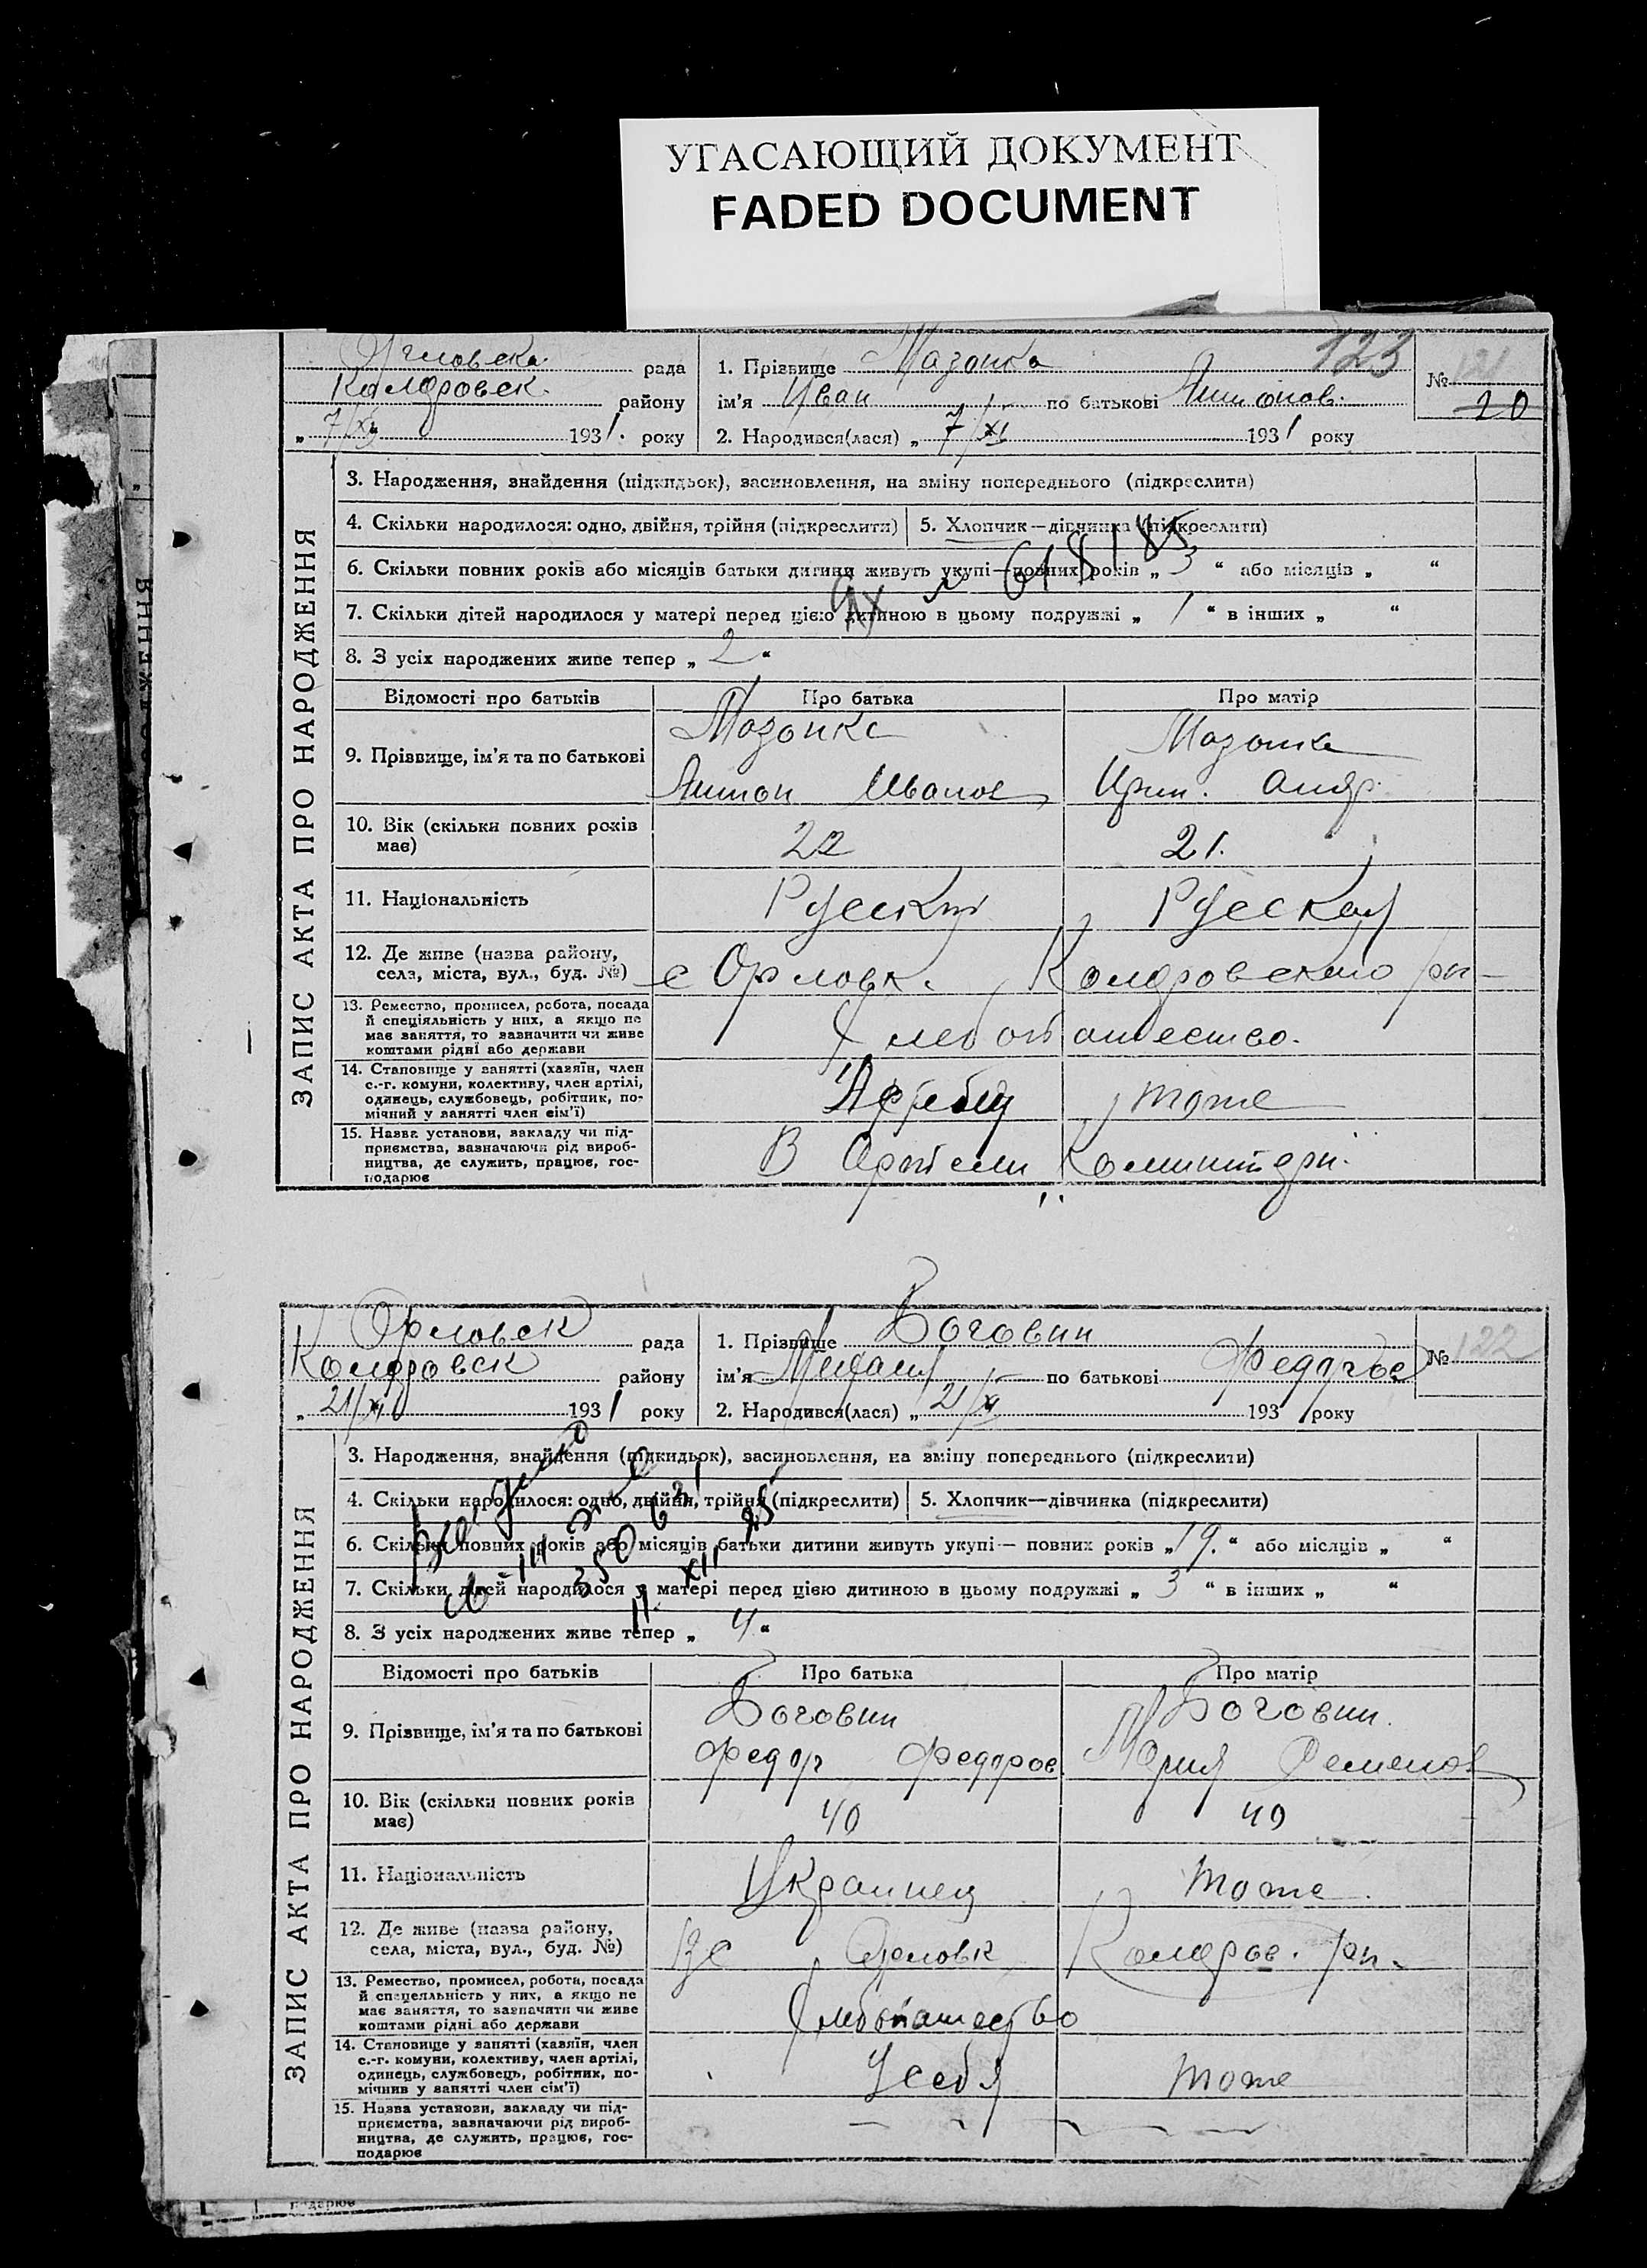 УГАСАЮЩИЙ ДОКУМЕНТ
FADED DOCUMENT
123
рада
району
„ 7/XI “ 1931. року
1. Прізвище Мазонка
ім'я Иван по батькові Антонов.
2. Народився(лася) „ 7/XI 1931 року
№ 121
20
ЗАПИС АКТА ПРО НАРОДЖЕННЯ
3. Народження, знайдення (підкидьок), засиновлення, на зміну попереднього (підкреслити)
4. Скільки народилося: одно, двійня, трійня (підкреслити)
5. Хлопчик—дівчинка (підкреслити)
6. Скільки повних років або місяців батьки дитини живуть укупі—повних років „ 3 “ або місяців „ “
7. Скільки дітей народилося у матері перед цією дитиною в цьому подружжі „ 1 “ в інших „ “
8. З усіх народжених живе тепер „ 2 “
Відомості про батьків
Про батька
Про матір
9. Прізвище, ім'я та по батькові
Мазонка
Антон Иванов
Мазонка
Ирин. Андр.
10. Вік (скільки повних років
має)
22
21.
11. Національність
Русский
Русская
12. Де живе (назва району,
села, міста, вул., буд. №)
с Орловк.
рн
13. Ремество, промисел, робота, посада
й спеціяльність у них, а якщо не
має заняття, то зазначити чи живе
коштами рідні або держави
Хлебопашество.
14. Становище у занятті (хазяїн, член
с.-г. комуни, колективу, член артілі,
одинець, службовець, робітник, по-
мічний у занятті член сім'ї)
тоже
15. Назва установи, закладу чи під-
приємства, зазначаючи рід вироб-
ництва, де служить, працює, гос-
подарює
В Артели Коминтерн.
Орловск рада
району
„ 21/XI 1931 року
1. Прізвище Боговин
ім'я Михаил по батькові Федоров
2. Народився(лася) „ 21/XI 1931 року
№ 122
ЗАПИС АКТА ПРО НАРОДЖЕННЯ
3. Народження, знайдення (підкидьок), засиновлення, на зміну попереднього (підкреслити)
4. Скільки народилося: одно, двійня, трійня (підкреслити)
5. Хлопчик—дівчинка (підкреслити)
6. Скільки повних років або місяців батьки дитини живуть укупі— повних років „ 19. “ або місяців „ “
7. Скільки дітей народилося у матері перед цією дитиною в цьому подружжі „ 3 “ в інших „ “
8. З усіх народжених живе тепер „ 4 “
Відомості про батьків
Про батька
Про матір
9. Прізвище, ім'я та по батькові
Боговин
Федор Федоров.
Боговин.
Мария Семенов
10. Вік (скільки повних років
має)
40
40
11. Національність
Украинец
тоже.
12. Де живе (назва району,
села, міста, вул., буд. №)
В с Орловк
рн.
13. Ремество, промисел, робота, посада
й спецеяльність у них, а якщо не
має заняття, то зазначити чи живе
коштами рідні або держави
Хлебопашество
14. Становище у занятті (хазяїн, член
с.-г. комуни, колективу, член артілі,
одинець, службовець, робітник, по-
мічнив у занятті член сім'ї)
У себя
тоже
15. Назва установи, закладу чи під-
приємства, зазначаючи рід вироб-
ництва, де служить, працює, гос-
подарює